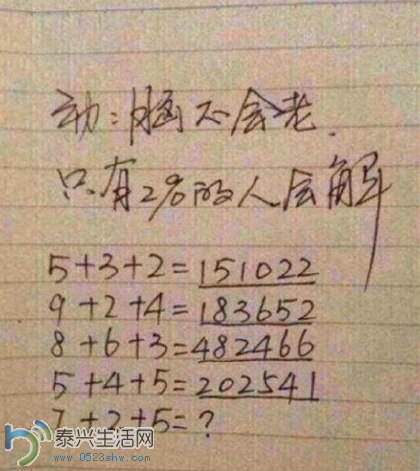 动:脑不会老.
只有2%的人会解
5+3+2=151022
9+2+4=183652
8+6+3=482466
5+4+5=202541
7+2+5=?
泰兴生活网
www.0523shw.com